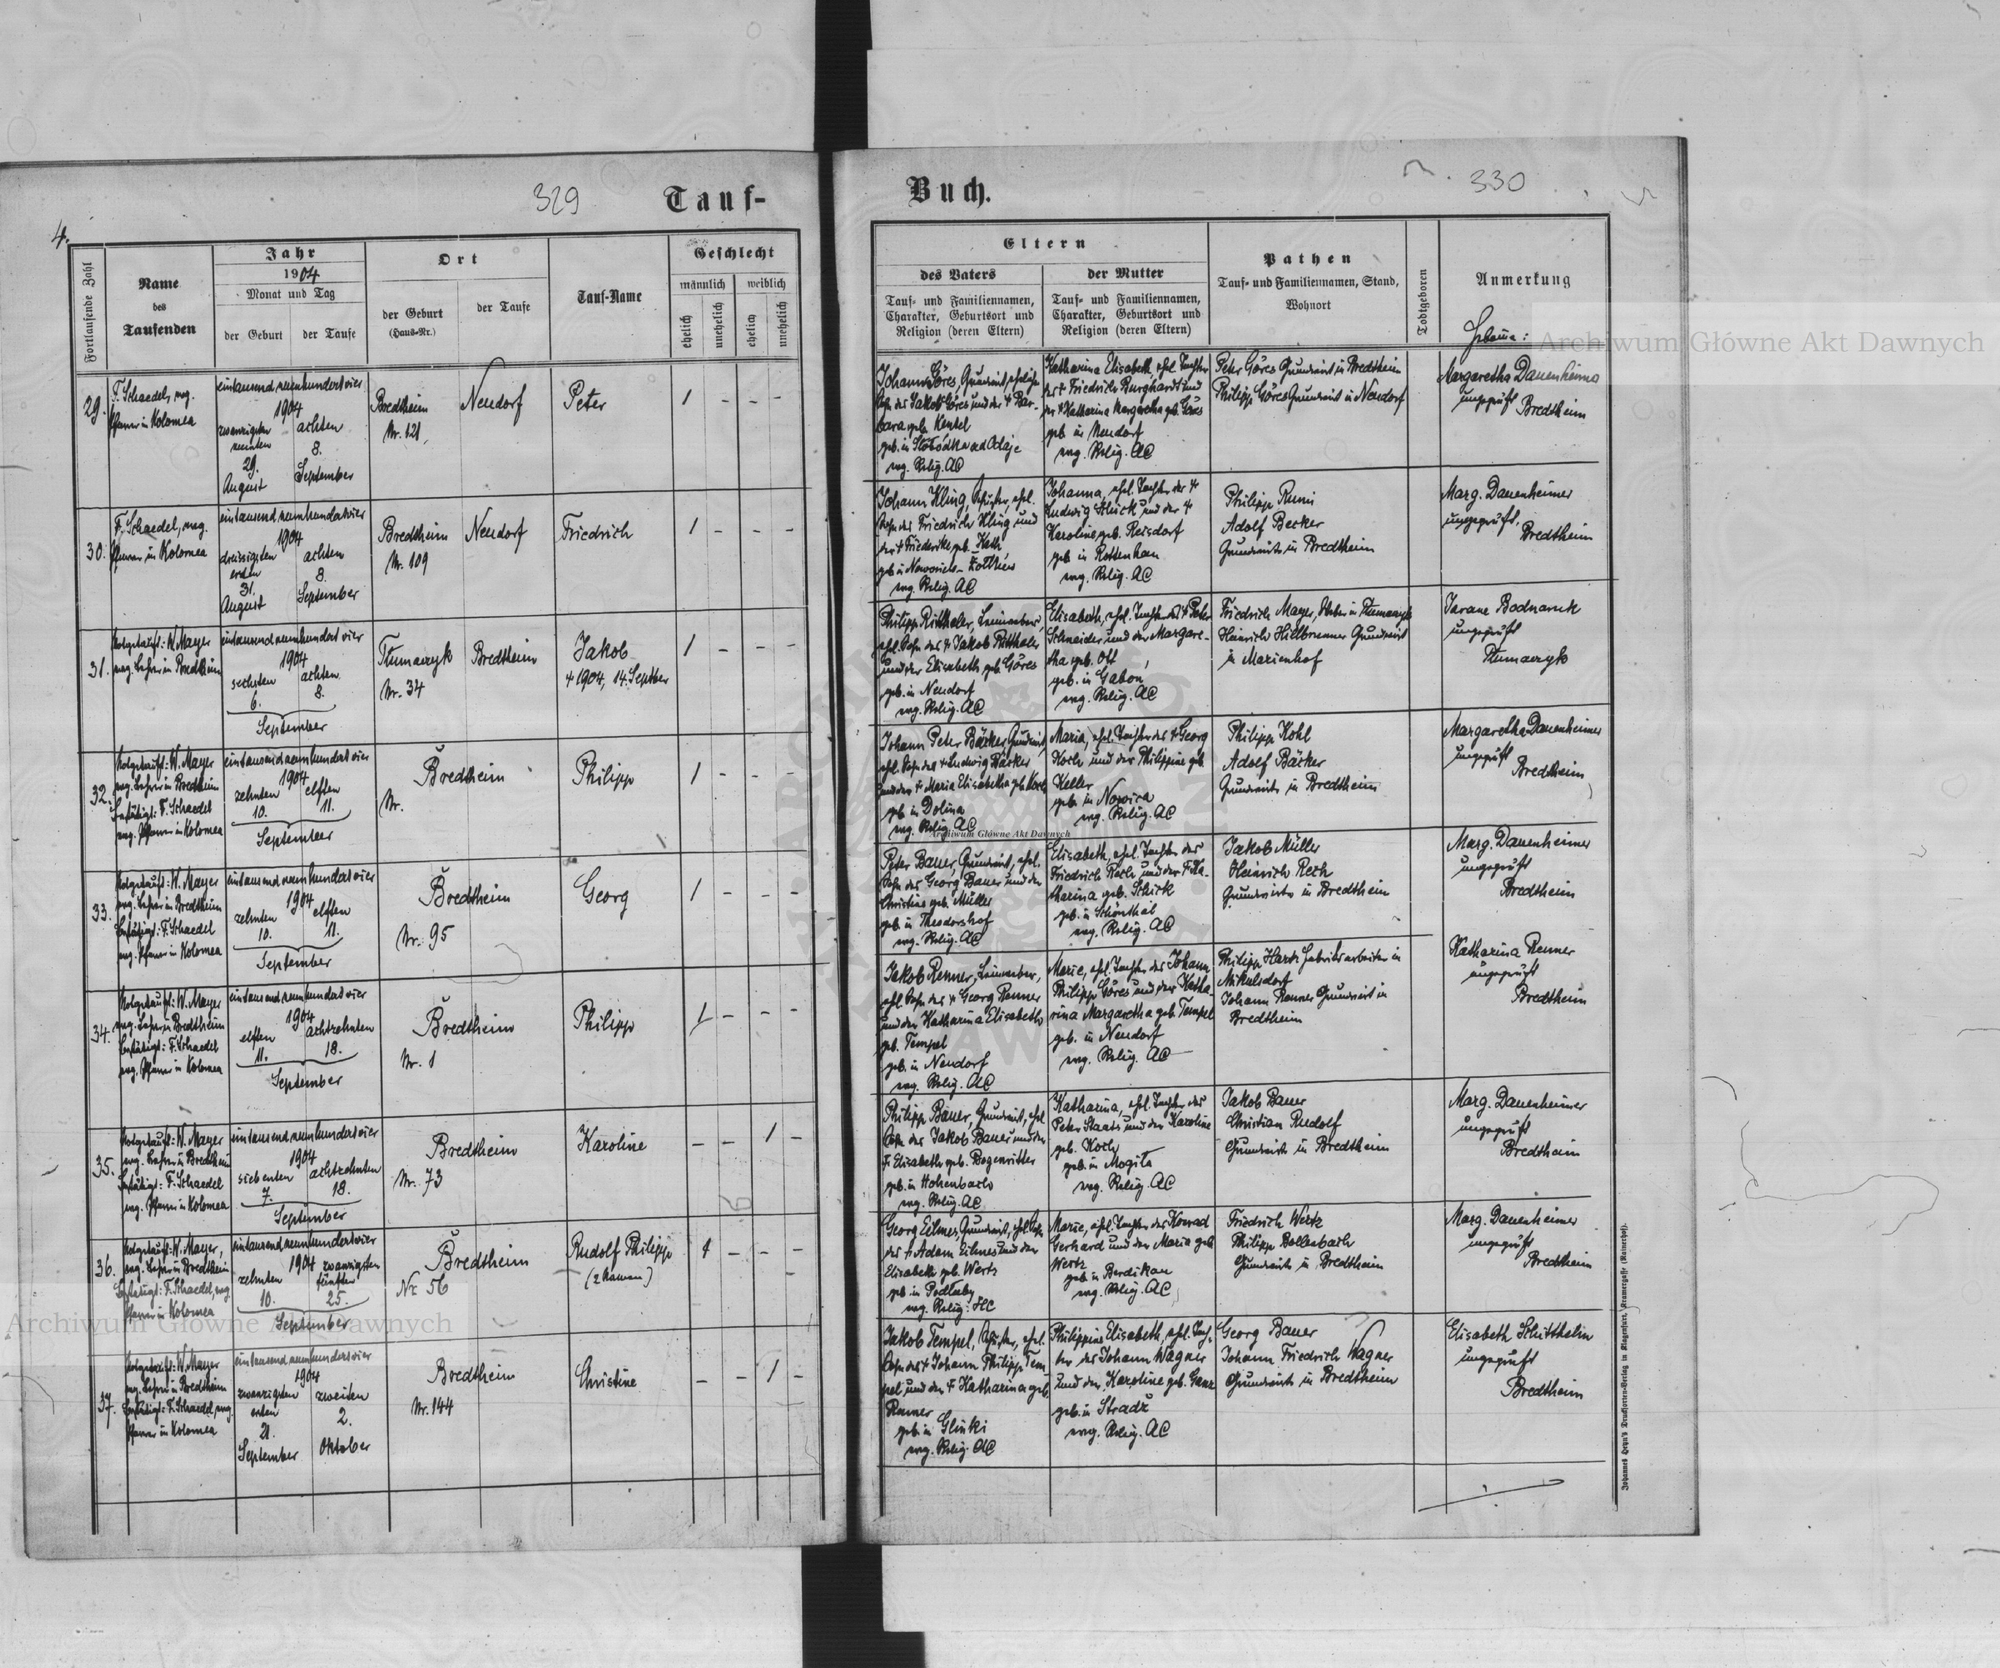 329
Tauf-
4.
Fortlaufende Zahl
Name
des
Taufenden
Jahr
1904
Monat und Tag
der Geburt
der Taufe
Ort
der Geburt
(Haus-Nr.)
der Taufe
Tauf-Name
Geschlecht
männlich
weiblich
ehelich
unehelich
ehelich
unehelich
29.
F. Schaedel, evg.
Pfarrer in Kolomea
eintausend neunhundertvier
1904
zwanzigsten
neunten
29.
August
achten
8.
September
Bredtheim
Nr. 121,
Neudorf
Peter
1 - - -
30.
F. Schaedel, evg.
Pfarrer in Kolomea
eintausend neunhundertvier
1904
dreissigsten
ersten
31.
August
achten
8.
September
Bredtheim
Nr. 109
Neudorf
Friedrich
1 - - -
31.
Notgetauft: W. Mayer
evg. Lehrer in Bredtheim
eintausend neunhundert vier
1904
sechsten
6.
achten
8.
September
Tłumaczyk
Nr. 34
Bredtheim
Jakob
+ 1904, 14. Septber
1 - - -
32.
Notgetauft: W. Mayer
evg. Lehrer in Bredtheim
bestätigt: F. Schaedel
evg. Pfarrer in Kolomea
eintausend neunhundert vier
1904
zehnten
10.
elften
11.
September
Bredtheim
Nr.
Philipp
1 - - -
33.
Notgetauft: W. Mayer
evg. Lehrer in Bredtheim
bestätigt: F. Schaedel
evg. Pfarrer in Kolomea
eintausend neunhundert vier
1904
zehnten
10.
elften
11.
September
Bredtheim
Nr. 95
Georg
1 - - -
34.
Notgetauft: W. Mayer
evg. Lehrer in Bredtheim
bestätigt: F. Schaedel
evg. Pfarrer in Kolomea
eintausend neunhundert vier
1904
elften
11.
achtzehnten
18.
September
Bredtheim
Nr. 1
Philipp
1 - - -
35.
Notgetauft: W. Mayer
evg. Lehrer in Bredtheim
bestätigt: F. Schaedel
evg. Pfarrer in Kolomea
eintausend neunhundert vier
1904
siebenten
7.
achtzehnten
18.
September
Bredtheim
Nr. 73
Karoline
- - 1 -
36.
Notgetauft: W. Mayer,
evg. Lehrer in Bredtheim
bestätigt: F. Schaedel, evg.
Pfarrer in Kolomea
eintausend neunhundertvier
1904
zehnten
10.
zwanzigsten
fünften
25.
September
Bredtheim
Nr. 56
Rudolf Philipp
(2 Namen)
1 - - -
37.
Notgetauft: W. Mayer
evg. Lehrer in Bredtheim
bestätigt: F. Schaedel, evg.
Pfarrer in Kolomea
eintausend neunhundertvier
1904
zwanzigsten
ersten
21.
September
zweiten
2.
Oktober
Bredtheim
Nr. 144
Christine
- - 1 -
Buch.
330
Eltern
des Vaters
Tauf- und Familiennamen,
Charakter, Geburtsort und
Religion (deren Eltern)
der Mutter
Tauf- und Familiennamen,
Charakter, Geburtsort und
Religion (deren Eltern)
Pathen
Tauf- und Familiennamen, Stand,
Wohnort
Todtgeboren
Anmerkung
Hebame:
Johann Göres, Grundwirt, ehelicher
Sohn des Jakob Göres und der + Bar-
bara geb. Kentel
geb. in Słobódka ad Odaje
evg. Relig. AC
Katharina Elisabeth, ehel. Tochter
des + Friedrich Burghardt und
der + Katharina Margaretha geb. Göres
geb. in Neudorf
evg. Relig. AC
Peter Göres Grundwirt in Bredtheim
Philipp Göres Grundwirt in Neudorf
Margaretha Dauenheimer
ungeprüft
Bredtheim
Johann Kling, Schuster, ehel.
Sohn des Friedrich Kling und
der + Friederike geb. Kath,
evg. Relig. AC
Johanna, ehel. Tochter des +
Ludwig Schick und der +
Karoline geb. Reisdorf
geb. in Rottenhan
evg. Relig. AC
Philipp
Adolf Becker
Grundwirte in Bredtheim
Marg. Dauenheimer
ungeprüft,
Bredtheim
Philipp Ritthaler, Leinweber
ehel. Sohn des + Jakob Ritthaler
und der Elisabeth geb. Göres
geb. in Neudorf
evg. Relig. AC
Elisabeth, ehel. Tochter des + Peter
Schneider und der Margare-
tha geb. Ott
geb. in Gabon
evg. Relig. AC
Friedrich Mayer, in Tłumaczyk
Heinrich Grundwirt
in Marienhof
Bodnaruk
ungeprüft
Tłumaczyk
Johann Peter Bäcker, Grundwirt,
ehel. Sohn des + Ludwig Bäcker
und der + Maria Elisabetha geb. Koch
geb. in Dolina
evg. Relig. AC
Maria, ehel. Tochter des + Georg
Koch und der Philippine geb.
Keller
geb. in Nowica
evg. Relig. AC
Philipp Kohl
Adolf Bäcker
Grundwirte in Bredtheim
Margaretha Dauenheimer
ungeprüft
Bredtheim
Peter Bauer, Grundwirt, ehel.
Sohn des Georg Bauer und der
Christine geb. Müller
geb. in Theodorshof
evg. Relig. AC
Elisabeth, ehel. Tochter des
Friedrich Rech und der + Ka-
tharina geb. Schick
geb. in Schönthal
evg. Relig. AC
Jakob Müller
Heinrich Rech
Grundwirte in Bredtheim
Marg. Dauenheimer
ungeprüft
Bredtheim
Jakob Renner, Leinweber,
ehel. Sohn des + Georg Renner
und der Katharina Elisabeth
geb. Tempel
geb. in Neudorf
evg. Relig. AC
Marie, ehel. Tochter des Johann
Philipp Göres und der Katha-
rina Margaretha geb. Tempel
geb. in Neudorf
evg. Relig. AC
Philipp Fabriksarbeiter in
Mikulsdorf
Johann Renner Grundwirt in
Bredtheim
Katharina Renner
ungeprüft
Bredtheim
Philipp Bauer, Grundwirt, ehel.
Sohn des Jakob Bauer und der
+ Elisabeth geb. Bogenritter
geb. in Hohenbach
evg. Relig. AC
Katharina, ehel. Tochter des
Peter Staats und der Karoline
geb. Koch
geb. in Mogiła
evg. Relig. AC
Jakob Bauer
Christian Rudolf
Grundwirte in Bredtheim
Marg. Dauenheimer
ungeprüft
Bredtheim
Georg Eilmes, Grundwirt, ehel. Sohn
des + Adam Eilmes und der
Elisabeth geb. Wertz
geb. in Podłuby
evg. Relig. HC
Marie, ehel. Tochter des Konrad
Gerhard und der Maria geb.
Wertz
geb. in Berdikau
evg. Relig. AC
Friedrich Wertz
Philipp Bollenbach
Grundwirte in Bredtheim
Marg. Dauenheimer
ungeprüft
Bredtheim
Jakob Tempel, Schuster, ehel.
Sohn des + Johann Philipp Tem-
pel und der + Katharina geb.
Renner
geb. in Glinki
evg. Relig. AC
Philippine Elisabeth, ehel. Toch-
ter des Johann Wagner
und der Karoline geb. Ganz
geb. in Stradz
evg. Relig. AC
Georg Bauer
Johann Friedrich Wagner
Grundwirte in Bredtheim
Elisabeth Schitthelm
ungeprüft
Bredtheim
Johannes Heyn's Drucksorten-Verlag in Klagenfurt, Kramergasse (Rainerhof).
Archiwum Główne Akt Dawnych
Archiwum Główne Akt Dawnych
Archiwum Główne Akt Dawnych